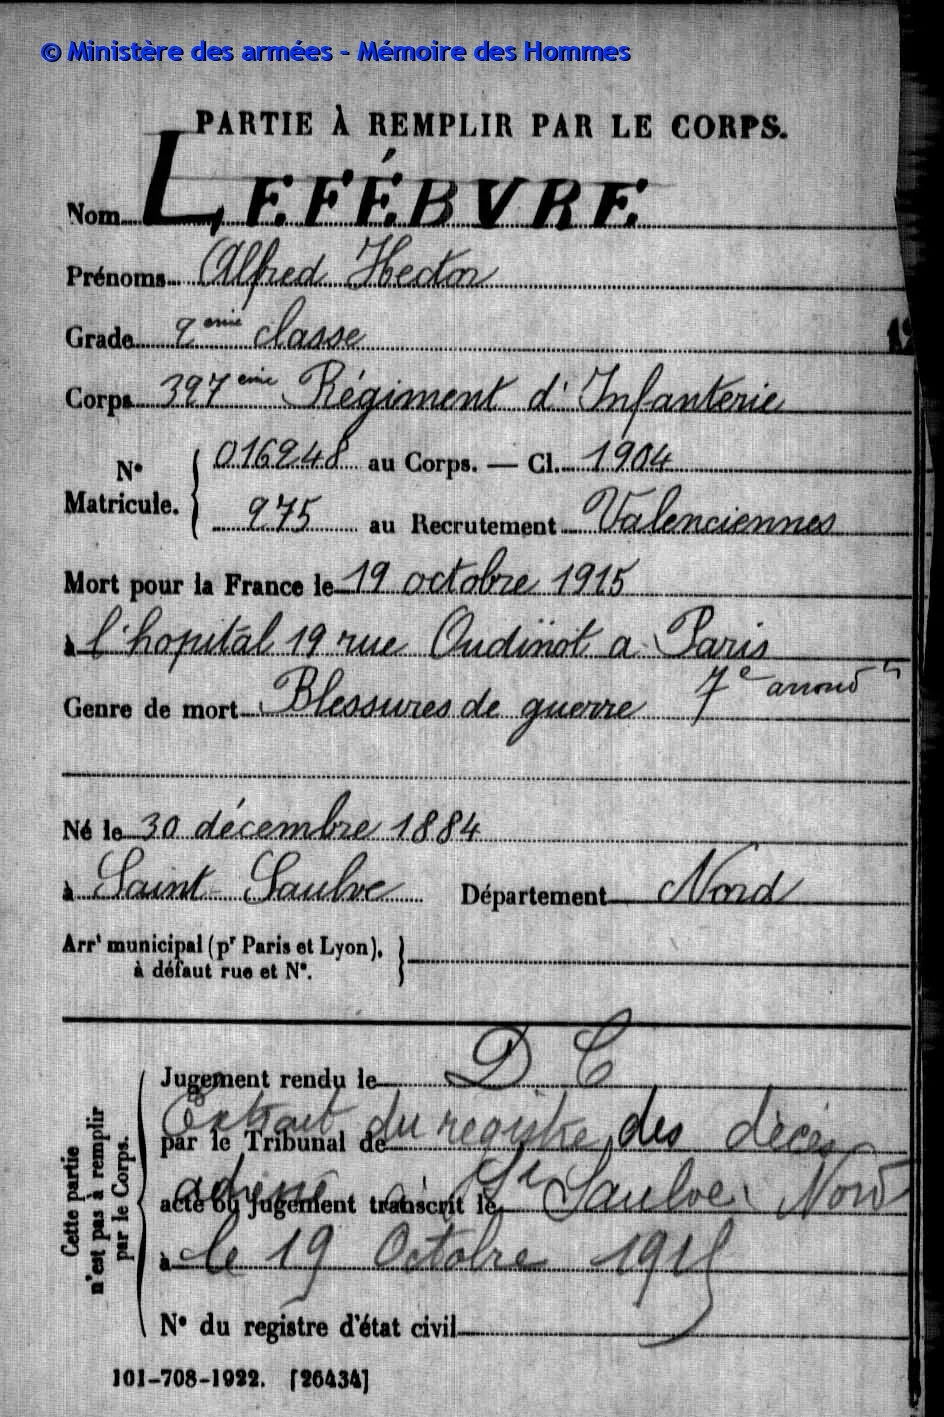 © Ministère des armées - Mémoire des Hommes
PARTIE À REMPLIR PAR LE CORPS.
Nom LEFÉBVRE
Prénoms Alfred Hector
Grade 2eme classe
Corps 397eme Régiment d'Infanterie
N° Matricule. { 016248 au Corps. — Cl. 1904
975 au Recrutement Valenciennes
Mort pour la France le 19 octobre 1915
à l'hopital 19 rue Oudinot a Paris
7e arrondt
Genre de mort Blessures de guerre
Né le 30 décembre 1884
à Saint-Saulve Département Nord
Arrt municipal (pr Paris et Lyon),
à défaut rue et N°. }
Cette partie
n'est pas à remplir
par le Corps.
Jugement rendu le D C
Extrait du registre des décès
par le Tribunal de
adressé à St Saulve Nord
acte ou jugement transcrit le
à le 19 Octobre 1915
N° du registre d'état civil
101-708-1922. [26434]